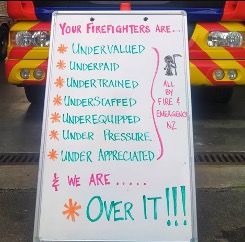 YOUR FIREFIGHTERS ARE...
* UNDERVALUED
* UNDERPAID
* UNDERTRAINED
* UNDERSTAFFED
* UNDEREQUIPPED
* UNDER PRESSURE
* UNDER APPRECIATED
ALL
BY
FIRE &
EMERGENCY
NZ
& WE ARE .....
* OVER IT!!!